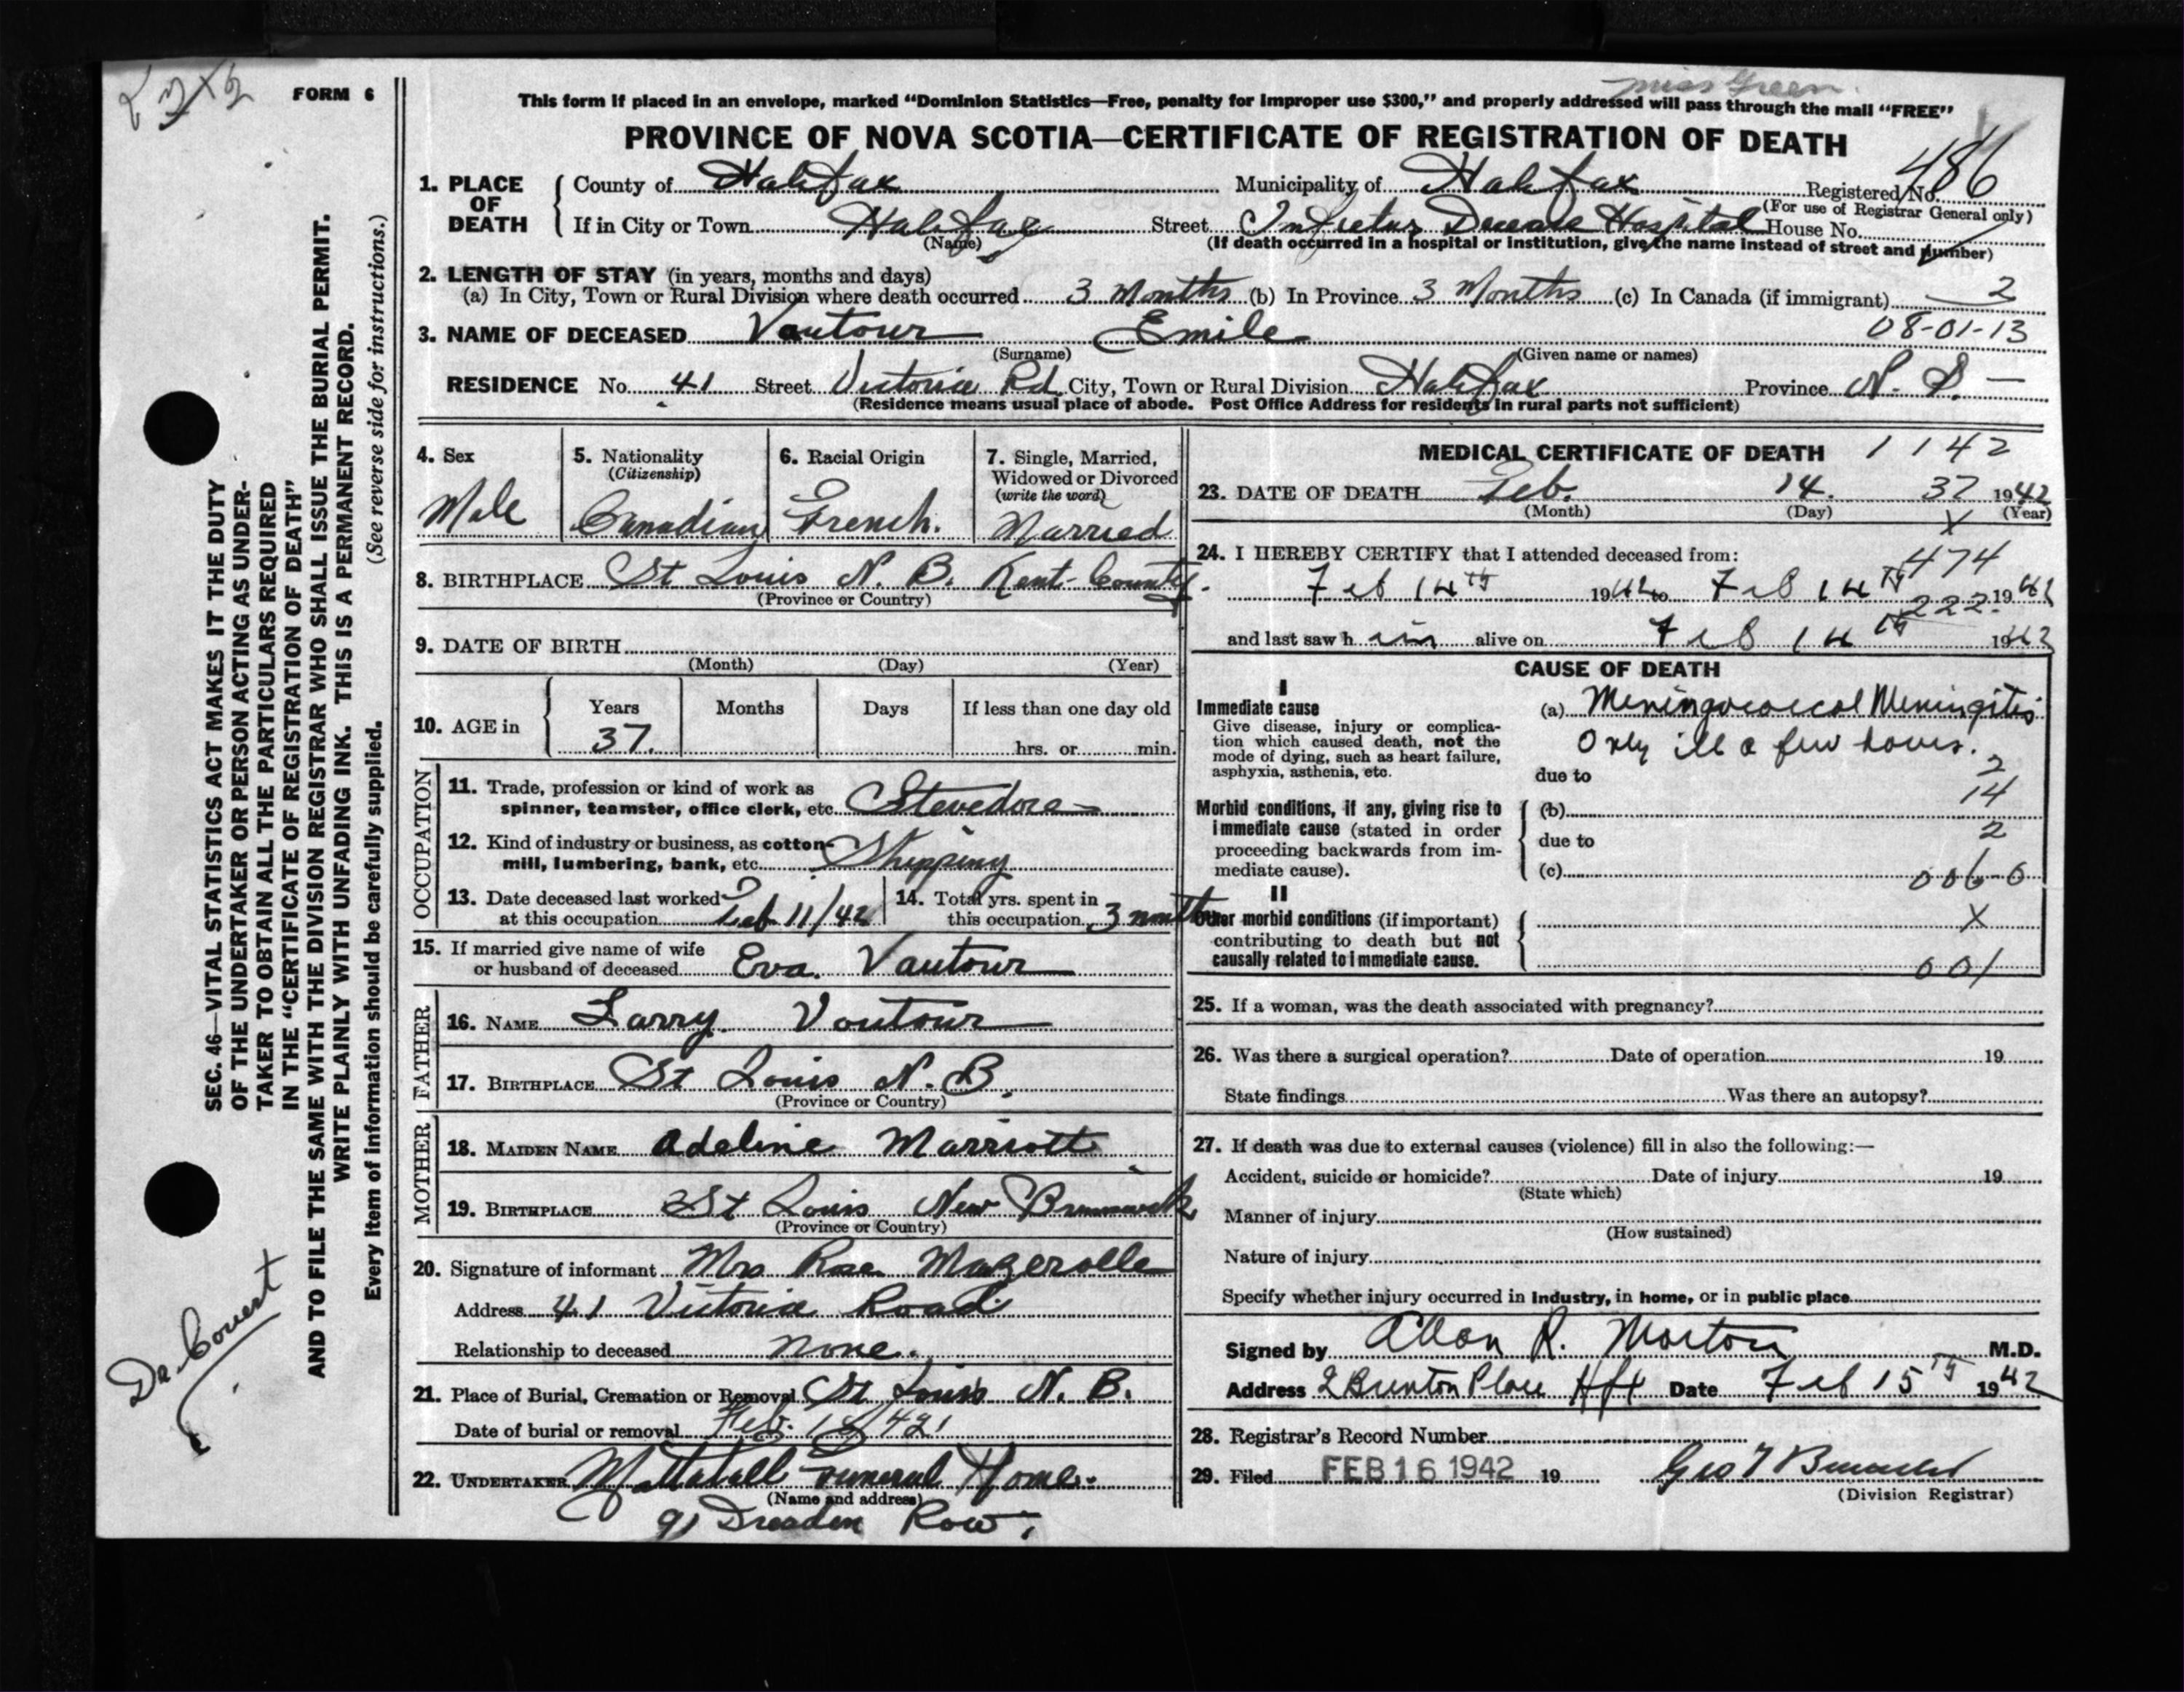 FORM 6
Miss Green
This form if placed in an envelope, marked “Dominion Statistics—Free, penalty for improper use $300,” and properly addressed will pass through the mail “FREE”
PROVINCE OF NOVA SCOTIA—CERTIFICATE OF REGISTRATION OF DEATH
1. PLACE OF DEATH
County of Halifax Municipality of Halifax Registered No. 486
(For use of Registrar General only)
If in City or Town Halifax Street Infectus Decease Hospital House No.
(Name) (If death occurred in a hospital or institution, give the name instead of street and number)
2. LENGTH OF STAY (in years, months and days)
(a) In City, Town or Rural Division where death occurred 3 Months (b) In Province 3 Months (c) In Canada (if immigrant) 2
08-01-13
3. NAME OF DECEASED Vautour Emile
(Surname) (Given name or names)
RESIDENCE No. 41 Street Victoria Rd City, Town or Rural Division Halifax Province N. S. —
(Residence means usual place of abode. Post Office Address for residents in rural parts not sufficient)
4. Sex
Male
5. Nationality
(Citizenship)
Canadian
6. Racial Origin
French.
7. Single, Married,
Widowed or Divorced
(write the word)
Married
8. BIRTHPLACE St Louis N. B. Kent County.
(Province or Country)
9. DATE OF BIRTH
(Month) (Day) (Year)
10. AGE in
Years Months Days If less than one day old
37. hrs. or min.
OCCUPATION
11. Trade, profession or kind of work as
spinner, teamster, office clerk, etc. Stevedore
12. Kind of industry or business, as cotton-
mill, lumbering, bank, etc. Shipping
13. Date deceased last worked
at this occupation Feb 11/42
14. Total yrs. spent in
this occupation 3 months
15. If married give name of wife
or husband of deceased Eva. Vautour
FATHER
16. NAME Larry. Vautour
17. BIRTHPLACE St Louis N. B.
(Province or Country)
MOTHER
18. MAIDEN NAME Adeline Marriott
19. BIRTHPLACE St Louis New Brunswick
(Province or Country)
20. Signature of informant Mrs Rose Mazerolle
Address 41 Victoria Road
Relationship to deceased none.
21. Place of Burial, Cremation or Removal St Louis N. B.
Date of burial or removal Feb. 18/42
22. UNDERTAKER Mattatall Funeral Home.
(Name and address)
91 Dresden Row.
MEDICAL CERTIFICATE OF DEATH 1142
23. DATE OF DEATH Feb. 14. 37 1942
(Month) (Day) (Year)
X
24. I HEREBY CERTIFY that I attended deceased from:
474
Feb 14th 1942 to Feb 14th 1942
222
and last saw him alive on Feb 14th 1942
CAUSE OF DEATH
I
Immediate cause
Give disease, injury or complica-
tion which caused death, not the
mode of dying, such as heart failure,
asphyxia, asthenia, etc.
(a) Meningococcal Meningitis
Only ill a few hours.
2
due to
14
Morbid conditions, if any, giving rise to
immediate cause (stated in order
proceeding backwards from im-
mediate cause).
(b)
2
due to
(c) 006-0
II
Other morbid conditions (if important)
contributing to death but not
causally related to immediate cause.
X
001
25. If a woman, was the death associated with pregnancy?
26. Was there a surgical operation? Date of operation 19
State findings Was there an autopsy?
27. If death was due to external causes (violence) fill in also the following:—
Accident, suicide or homicide? Date of injury 19
(State which)
Manner of injury
(How sustained)
Nature of injury
Specify whether injury occurred in industry, in home, or in public place
Signed by Allan R. Morton M.D.
Address 2 Brunton Place Hfx Date Feb 15th 1942
28. Registrar's Record Number
29. Filed FEB 16 1942 19 Geo
(Division Registrar)
SEC. 46—VITAL STATISTICS ACT MAKES IT THE DUTY
OF THE UNDERTAKER OR PERSON ACTING AS UNDER-
TAKER TO OBTAIN ALL THE PARTICULARS REQUIRED
IN THE “CERTIFICATE OF REGISTRATION OF DEATH”
AND TO FILE THE SAME WITH THE DIVISION REGISTRAR WHO SHALL ISSUE THE BURIAL PERMIT.
WRITE PLAINLY WITH UNFADING INK. THIS IS A PERMANENT RECORD.
Every item of information should be carefully supplied. (See reverse side for instructions.)